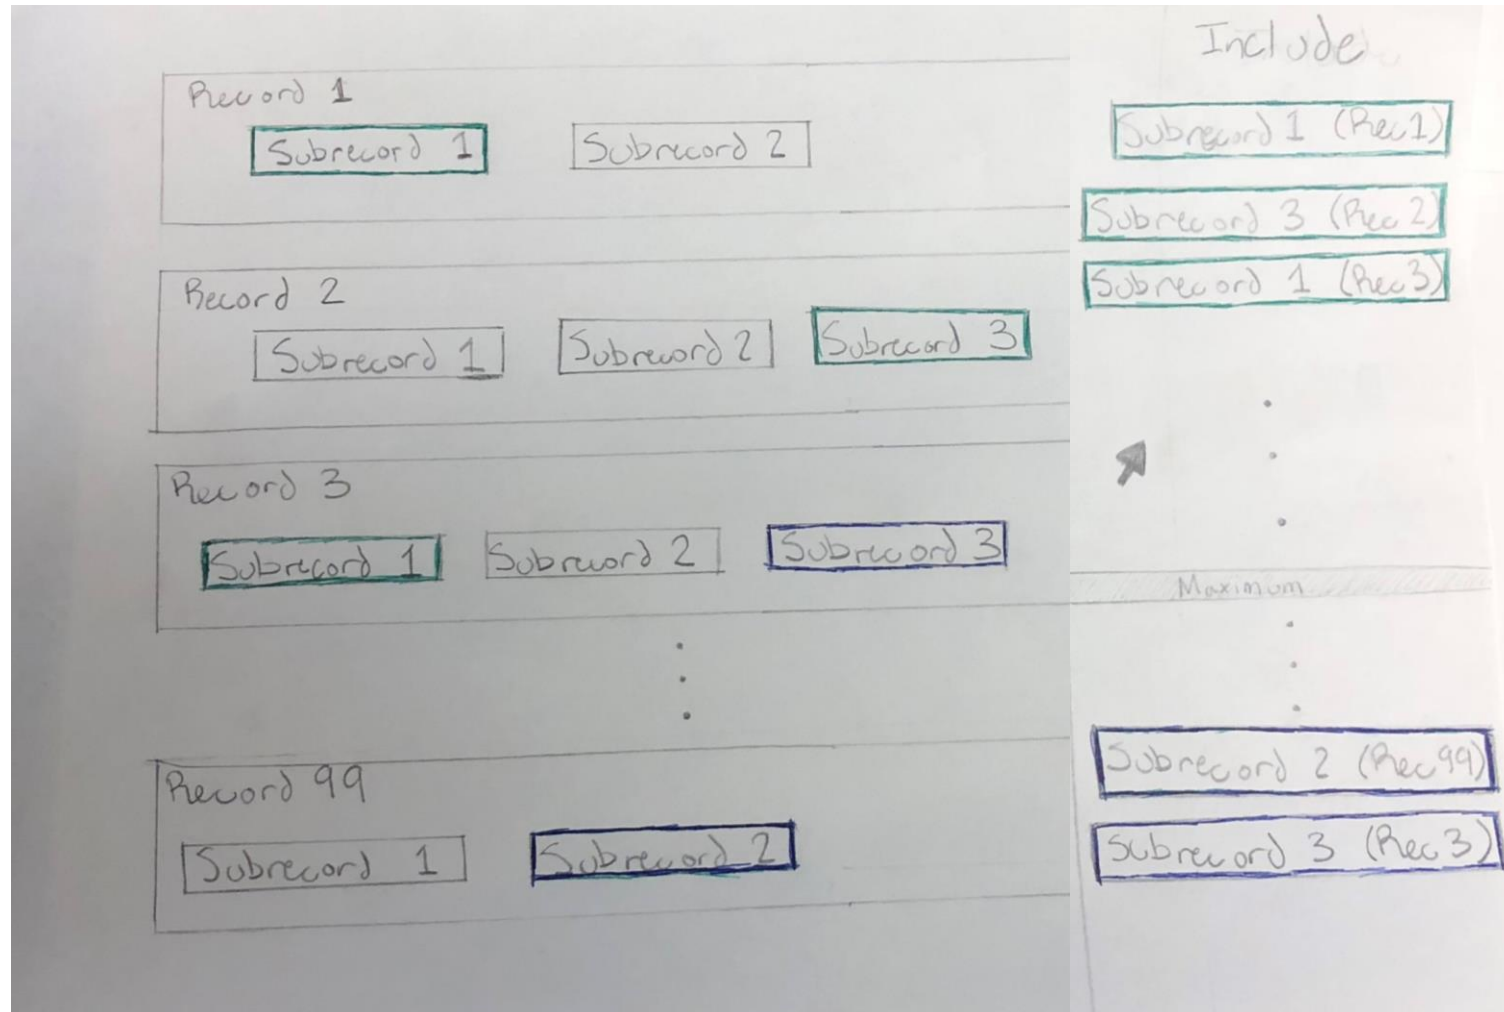 Include
Record 1
Subrecord 1
Subrecord 2
Record 2
Subrecord 1
Subrecord 2
Subrecord 3
Record 3
Subrecord 1
Subrecord 2
Subrecord 3
Record 99
Subrecord 1
Subrecord 2
Subrecord 1 (Rec1)
Subrecord 3 (Rec 2)
Subrecord 1 (Rec3)
Maximum
Subrecord 2 (Rec99)
Subrecord 3 (Rec3)